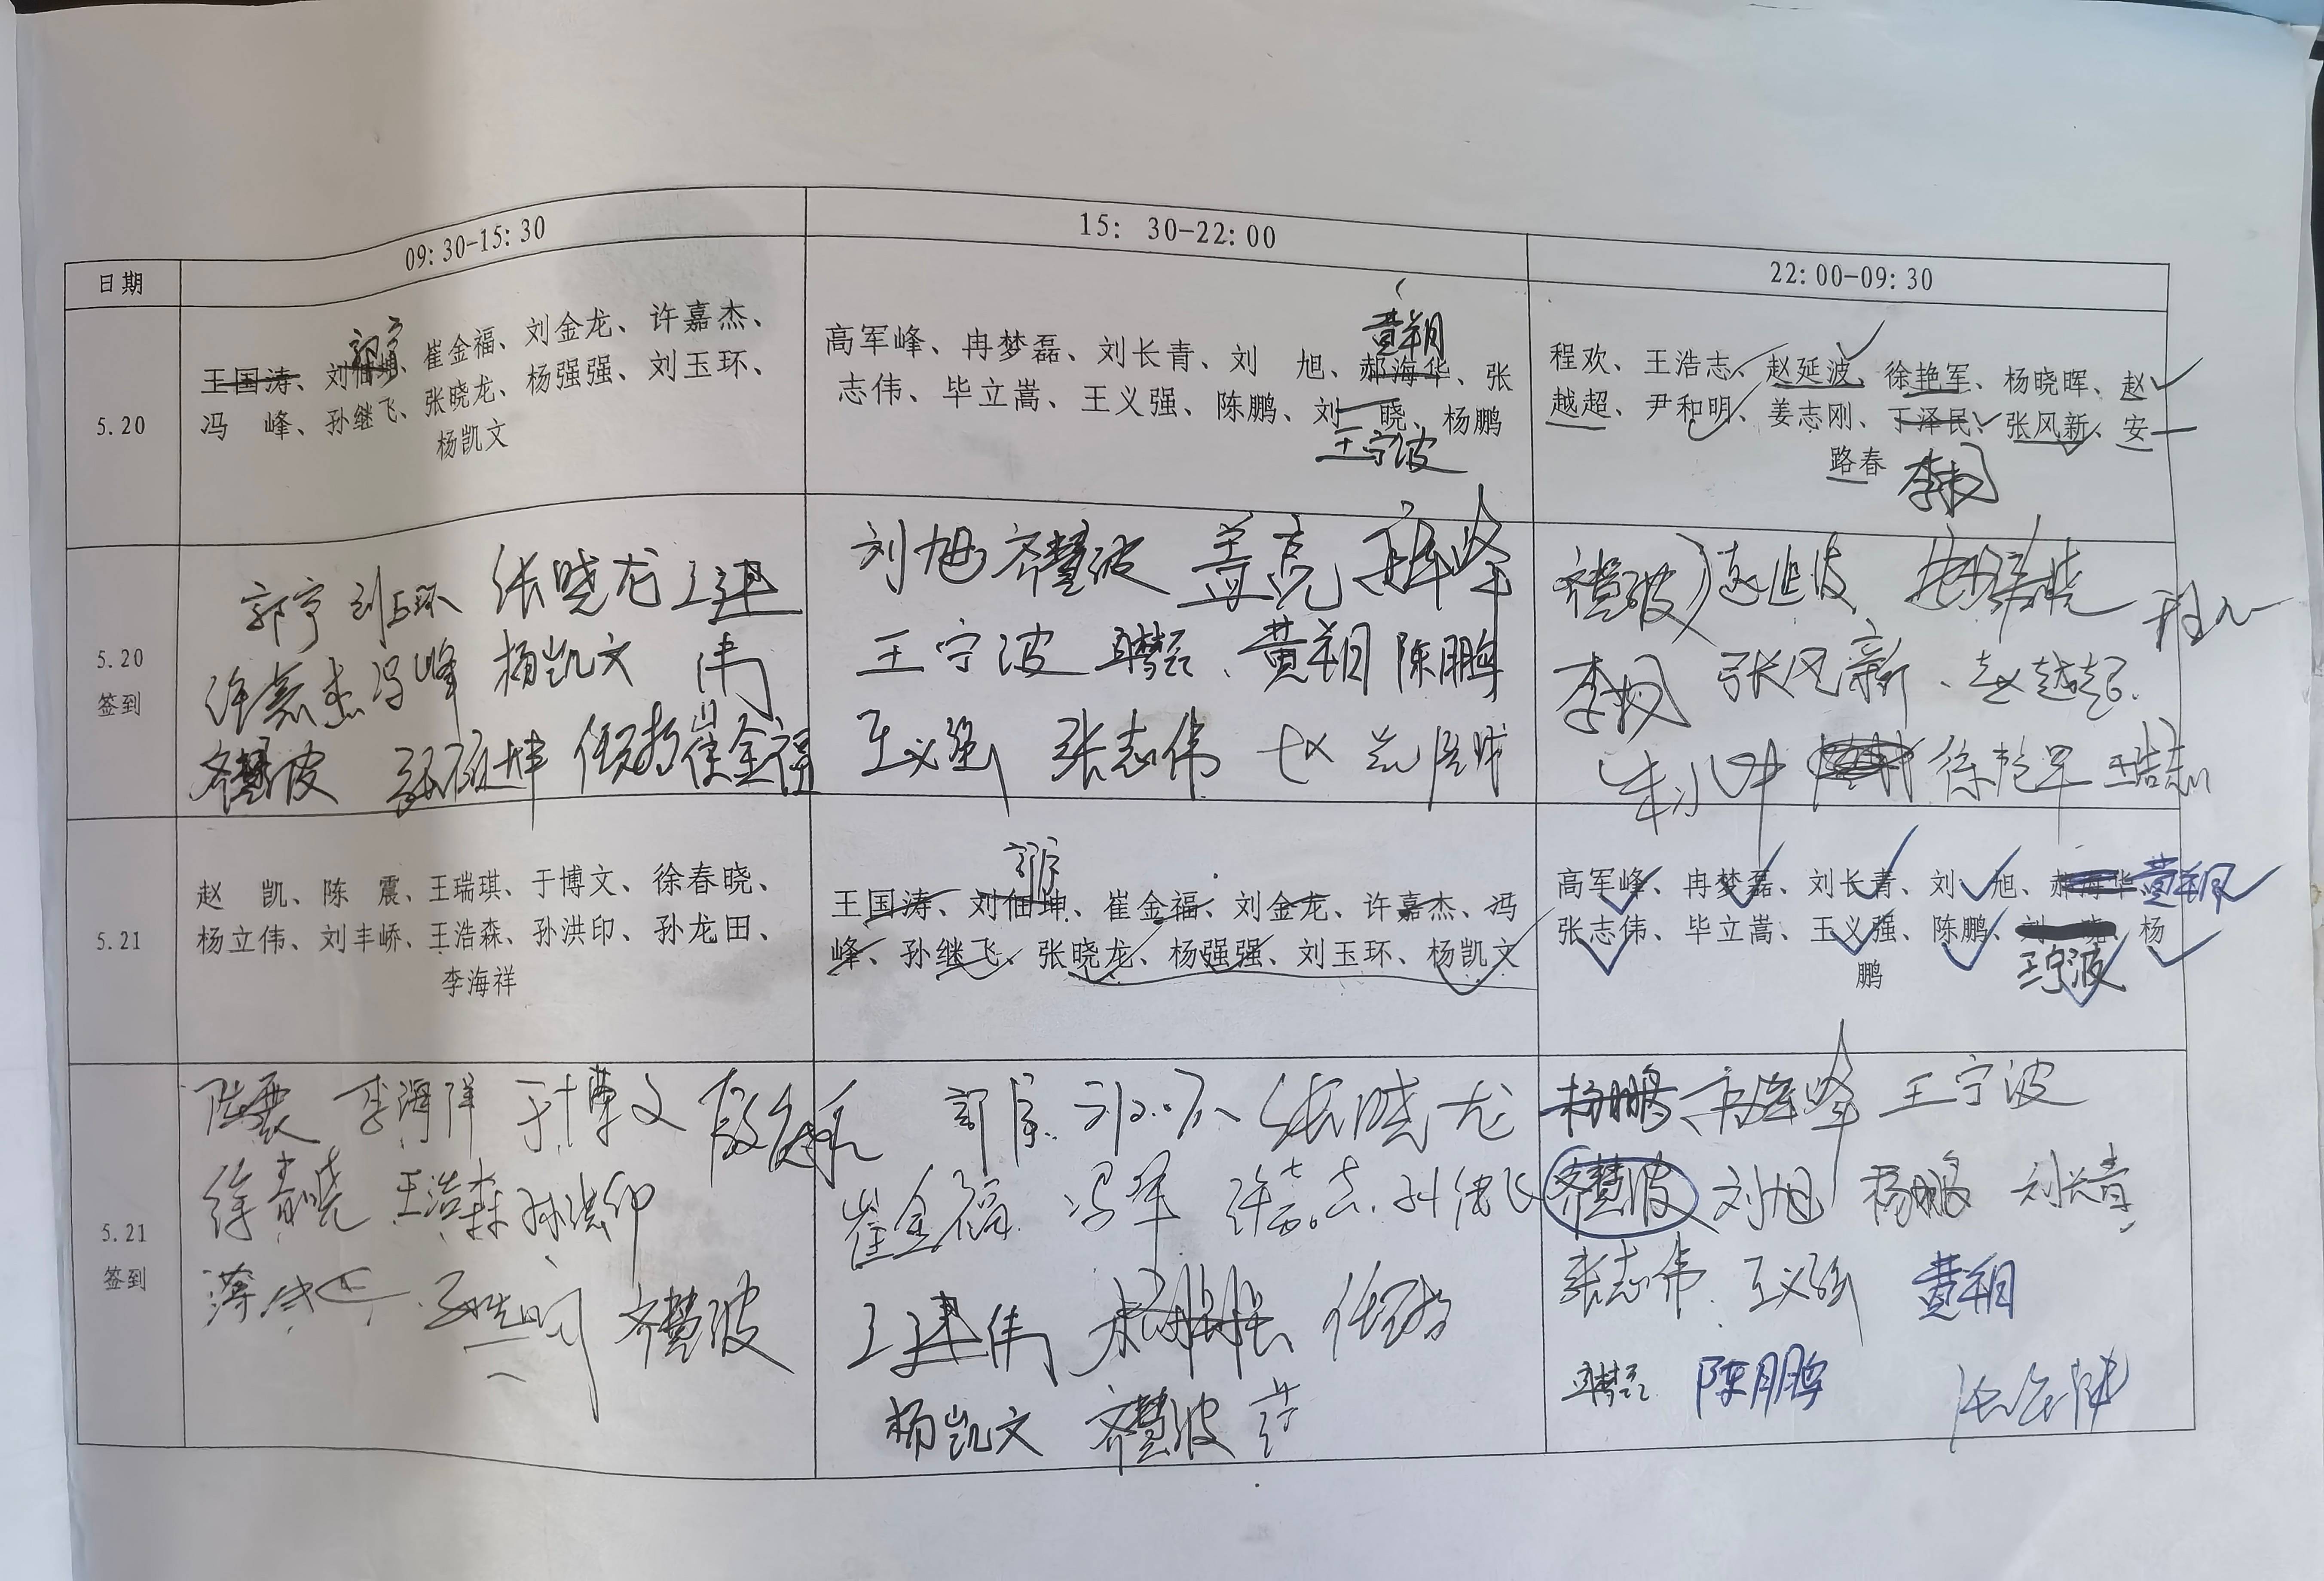 日期 09:30-15:30 15: 30-22:00 22:00-09:30
5.20
郭亨
王国涛、刘佃坤、崔金福、刘金龙、许嘉杰、
冯 峰、孙继飞、张晓龙、杨强强、刘玉环、
杨凯文
黄朔
高军峰、冉梦磊、刘长青、刘 旭、郝海华、张
志伟、毕立嵩、王义强、陈鹏、刘 晓、杨鹏
王宁波
程欢、王浩志、赵延波、徐艳军、杨晓晖、赵
越超、尹和明、姜志刚、丁泽民、张风新、安
路春
5.20
签到
郭亨 刘玉环 张晓龙 王建
许嘉杰 冯峰 杨凯文 伟
齐慧波 崔金福
刘旭 齐慧波 盖亮 高军峰
王宁波 冉梦磊 黄朔 陈鹏
王义强 张志伟
齐慧波 赵延波
张风新 赵越超
徐艳军 王浩志
5.21
赵 凯、陈 震、王瑞琪、于博文、徐春晓、
杨立伟、刘丰峤、王浩森、孙洪印、孙龙田、
李海祥
王国涛、刘佃坤、崔金福、刘金龙、许嘉杰、冯
峰、孙继飞、张晓龙、杨强强、刘玉环、杨凯文
高军峰、冉梦磊、刘长青、刘 旭、郝海华 黄朔
张志伟、毕立嵩、王义强、陈鹏、刘 晓、杨
鹏 王宁波
5.21
签到
陈震 李海祥 于博文
徐春晓 王浩森 孙洪印
齐慧波
张晓龙
崔金福 冯峰 许嘉杰 孙继飞
王建伟
杨凯文 齐慧波
杨鹏 高军峰 王宁波
齐慧波 刘旭 杨鹏 刘长青
张志伟 王义强 黄朔
冉梦磊 陈鹏